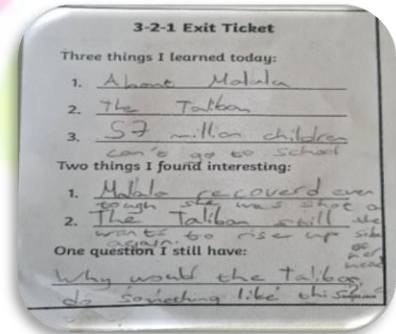 3-2-1 Exit Ticket
Three things I learned today:
1. About Malala
2. The Taliban
3. 57 million children
can't go to school
Two things I found interesting:
1. Malala recoverd even
tough she was shot on
the side of her head
2. The Taliban still
wants to rise up
again.
One question I still have:
Why would the Taliban
do something like this